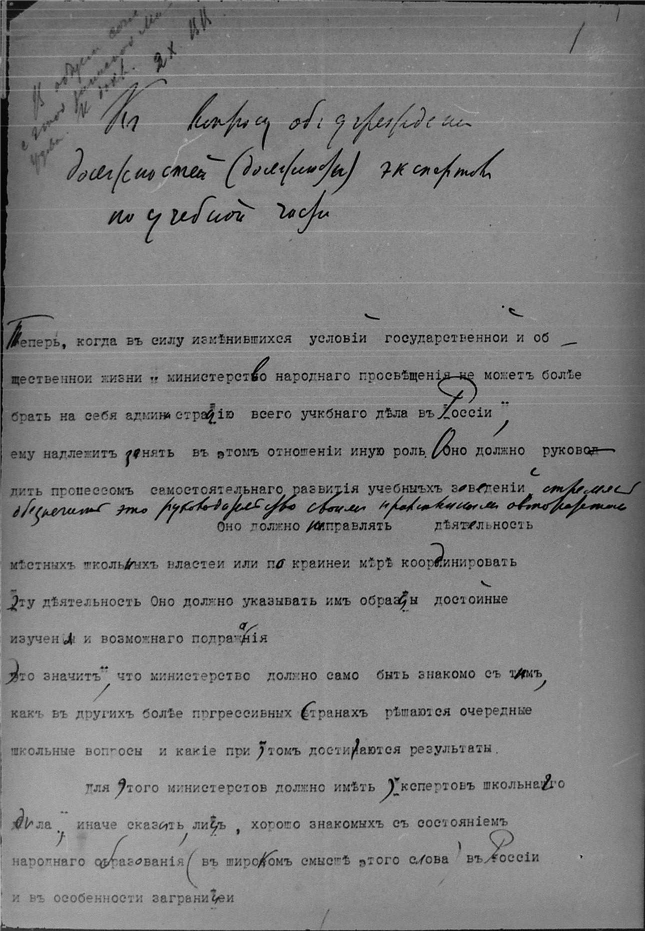 2 X.
1
Къ вопросу объ учрежденіи
должностей (должности) экспертовъ
по учебной части
Теперь, когда въ силу измѣнившихся условій государственной и об -
щественной жизни министерство народнаго просвѣщенія не можетъ болѣе
брать на себя администрацію всего учкбнаго дѣла въ Россіи,
ему надлежитъ занять въ этомъ отношеніи иную роль. Оно должно руковод-
дить процессомъ самостоятельнаго развитія учебныхъ заведеній, стремясь
обезпечить это руководительство своимъ нравственнымъ авторитетомъ
Оно должно направлять дѣятельность
мѣстныхъ школьныхъ властеи или по краинеи мѣрѣ координировать
эту дѣятельность Оно должно указывать имъ образцы достойные
изученія и возможнаго подражанія
Это значитъ, что министерство должно само быть знакомо съ тѣмъ,
какъ въ другихъ болѣе пргрессивныхъ странахъ рѣшаются очередные
школьные вопросы и какіе при этомъ достигаются результаты.
Для этого министерстов должно имѣть экспертовъ школьнаго
дѣла, иначе сказать, лицъ, хорошо знакомыхъ съ состояніемъ
народнаго образованія (въ широкомъ смыслѣ этого слова) въ Россіи
и въ особенности заграницеи